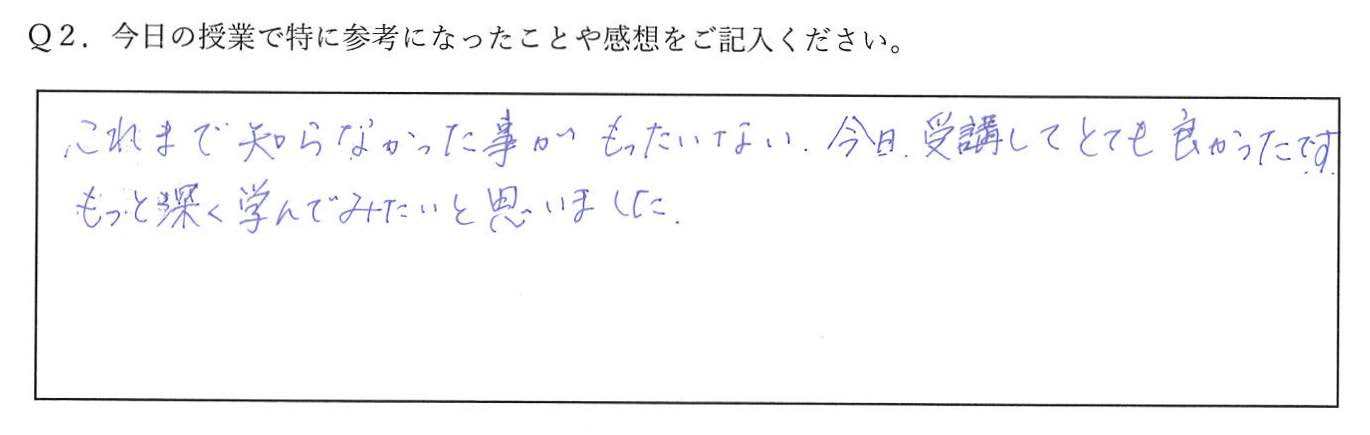 Q2．今日の授業で特に参考になったことや感想をご記入ください。
これまで知らなかった事がもったいない. 今日. 受講してとても良かったです.
もっと深く学んでみたいと思いました.